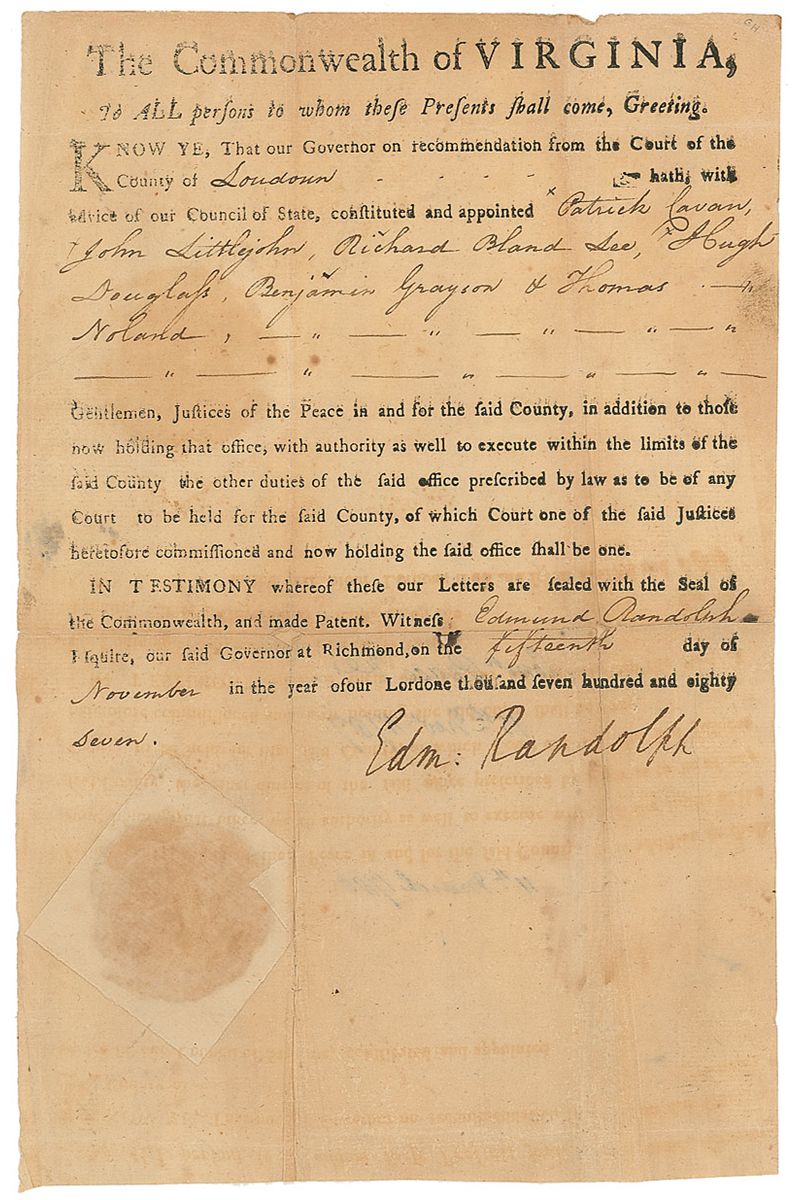 GH
The Commonwealth of VIRGINIA,
To ALL persons to whom theſe Preſents ſhall come, Greeting.
KNOW YE, That our Governor on recommendation from the Court of the
County of Loudoun - - - - hath, with
advice of our Council of State, conſtituted and appointed Patrick Cavan,
John Littlejohn, Richard Bland Lee, Hugh
Douglaſs, Benjamin Grayson & Thomas
Noland, — " — " — " — " — "
— " — " — " — " — " —
Gentlemen, Juſtices of the Peace in and for the ſaid County, in addition to thoſe
now holding that office, with authority as well to execute within the limits of the
ſaid County the other duties of the ſaid office preſcribed by law as to be of any
Court to be held for the ſaid County, of which Court one of the ſaid Juſtices
heretofore commiſſioned and now holding the ſaid office ſhall be one.
IN TESTIMONY whereof theſe our Letters are ſealed with the Seal of
the Commonwealth, and made Patent. Witneſs Edmund Randolph
Eſquire, our ſaid Governor at Richmond, on the fifteenth day of
November in the year ofour Lordone thouſand ſeven hundred and eighty
seven.
Edm: Randolph